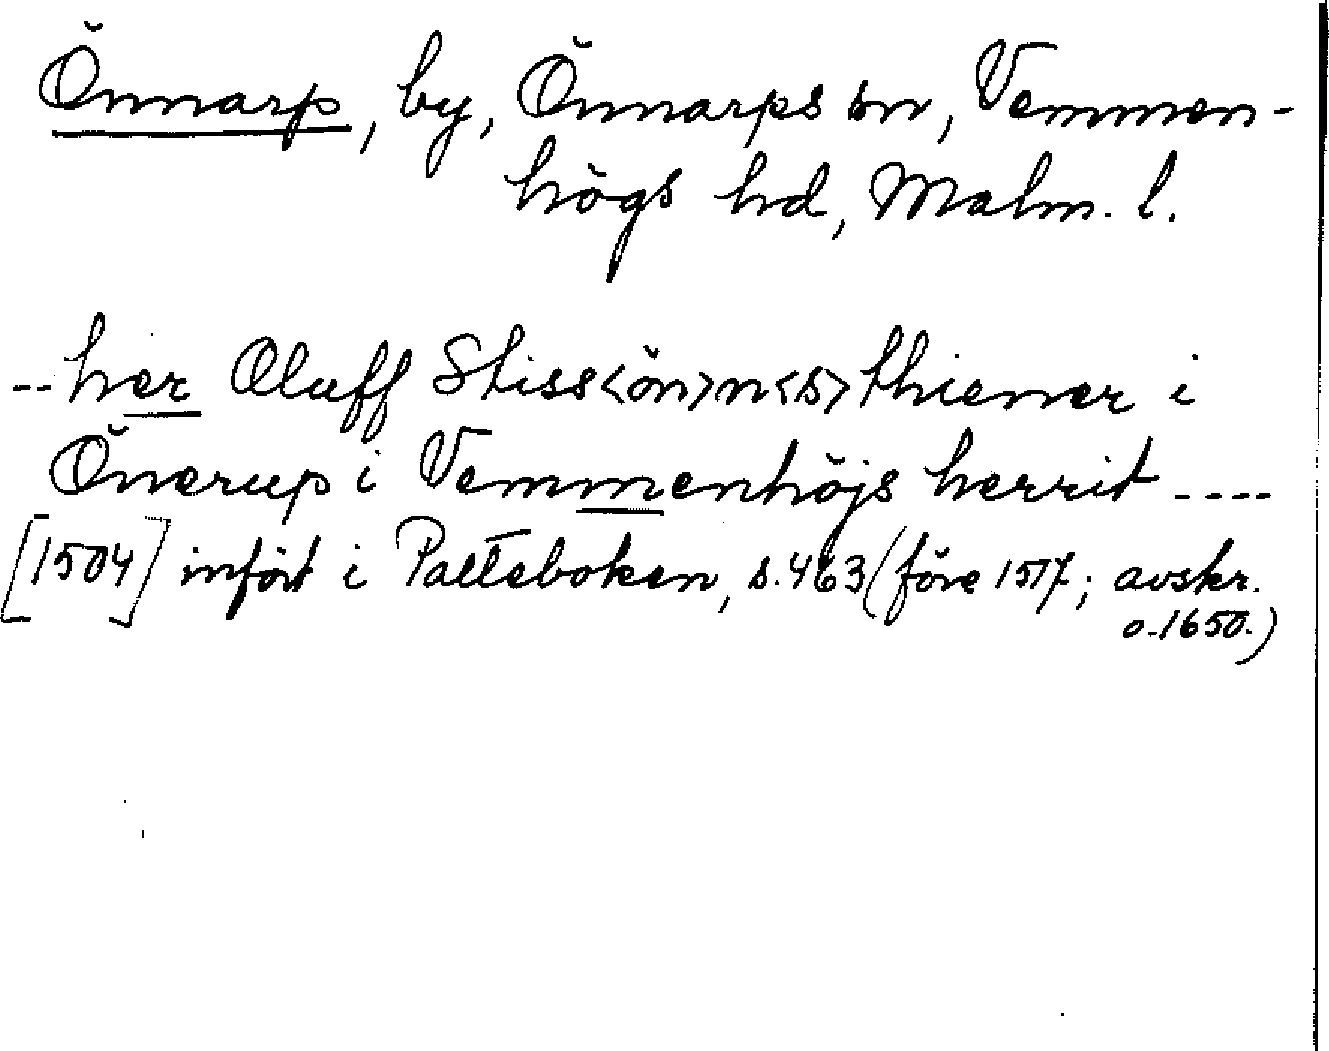 Önnarp, by, Önnarps sn, Vemmen-
högs hd, Malm. l.
-- her Oluff Stiss<ön>n<s> thiener i
Önerup i Vemmenhöjs herrit ----
[1504] infört i Palteboken, s. 463 (före 1517; avskr.
o. 1650.)